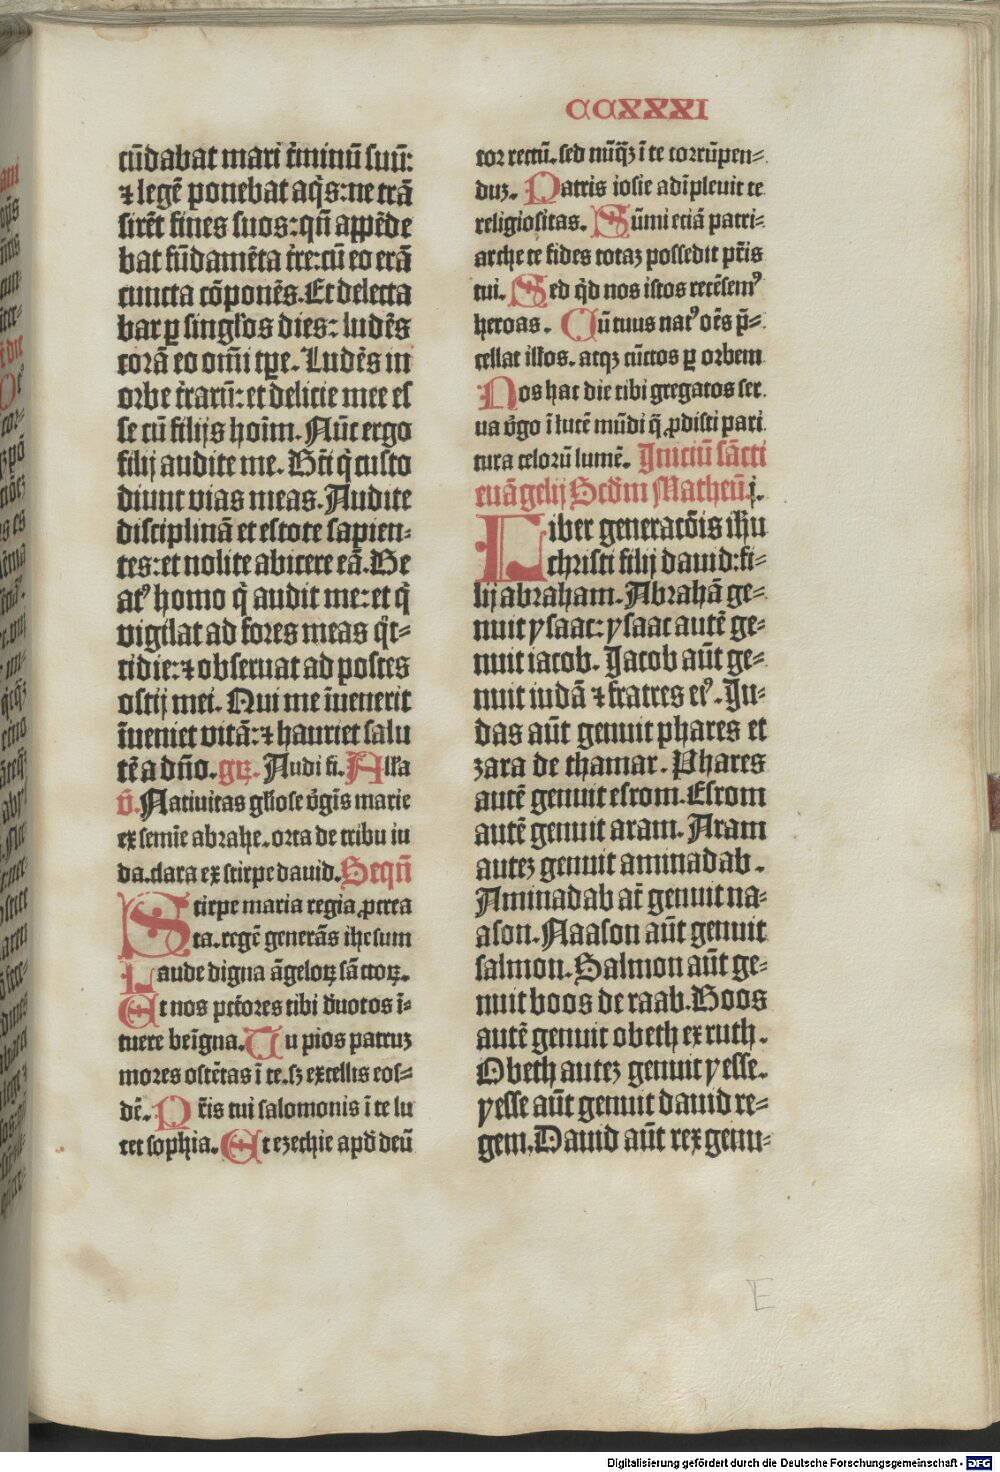 CCXXXI
cūdabat mari t̄minū suū:
⁊ legē ponebat aq̄s: ne trā
sirēt fines suos: qn̄ appēde
bat fūdamēta t̄re: cū eo erā
cuncta cōponēs. Et delecta
bar ꝑ singl̄os dies: ludēs
corā eo om̄i tp̄e. Ludēs in
orbe t̄rarū: et delicie mee es
se cū filijs hoīm. Nūc ergo
filij audite me. Bt̄i q̄ custo
diunt vias meas. Audite
disciplinā et estote sapien⸗
tes: et nolite abicere eā. Be
atꝰ homo q̄ audit me: et q̄
vigilat ad fores meas q̄t⸗
tidie: ⁊ obseruat ad postes
ostij mei. Qui me īuenerit
īueniet vitā: ⁊ hauriet salu
tē a dn̄o. gꝝ. Audi fi. All̄a
v̄. Natiuitas gl̄iose v̄gīs marie
ex semīe abrahe. orta de tribu iu
da. clara ex stirpe dauid. Sequī
Stirpe maria regia ꝓcrea
ta. regē generās ihesum
Laude digna āgeloꝝ sāctoꝝ.
Et nos pctōres tibi d̄uotos ī⸗
tuere beīgna. Tu pios patruꝫ
mores ostētas ī te. sꝫ excellis eos⸗
dē. Pr̄is tui salomonis ī te lu
cet sophia. Et ezechie apd̄ deū
cor rectū. sed nūq̄ꝫ ī te corrūpen⸗
duꝫ. Patris iosie adīpleuit te
religiositas. Sūmi eciā patri⸗
arche te fides totaꝫ possedit pr̄is
tui. Sed q̄d nos istos recēsemꝰ
heroas. Cū tuus natꝰ oēs p̄⸗
cellat ill̄os. atqꝫ cūctos ꝑ orbem
Nos hac die tibi gregatos ser
ua v̄go ī lucē mūdi q̄ ꝓdisti pari
tura celorū lumē. Iniciū sācti
euāgelij Scd̄m Matheū. j.
Liber generacōis ih̄u
christi filij dauid: fi⸗
lij abraham. Abrahā ge⸗
nuit ysaac: ysaac autē ge⸗
nuit iacob. Jacob aūt ge⸗
nuit iudā ⁊ fratres eiꝰ. Iu⸗
das aūt genuit phares et
zara de thamar. Phares
autē genuit esrom. Esrom
autē genuit aram. Aram
auteꝫ genuit aminadab.
Aminadab aūt genuit na⸗
ason. Naason aūt genuit
salmon. Salmon aūt ge⸗
nuit boos de raab. Boos
autē genuit obeth ex ruth.
Obeth auteꝫ genuit yesse.
yesse aūt genuit dauid re⸗
gem. Dauid aūt rex genu⸗
E
Digitalisierung gefördert durch die Deutsche Forschungsgemeinschaft - DFG